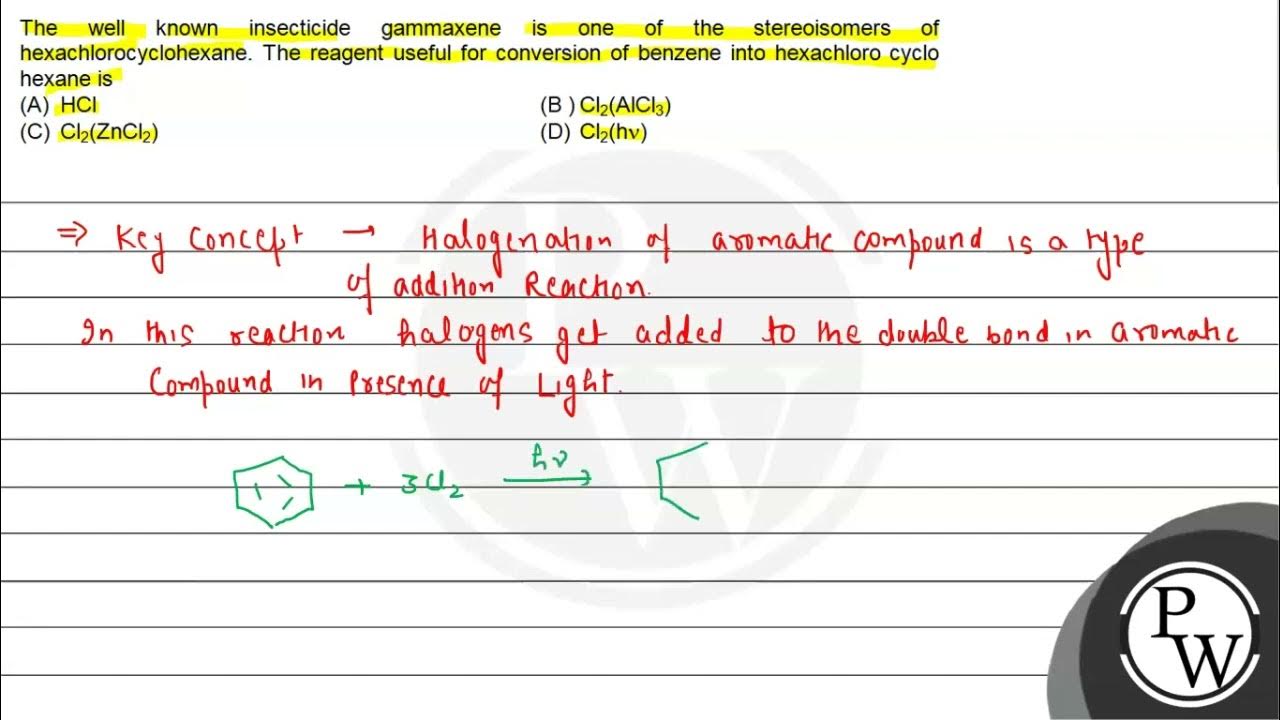 The well known insecticide gammaxene is one of the stereoisomers of
hexachlorocyclohexane. The reagent useful for conversion of benzene into hexachloro cyclo
hexane is
(A) HCl (B ) Cl₂(AlCl₃)
(C) Cl₂(ZnCl₂) (D) Cl₂(hν)
⇒ Key Concept → Halogenation of aromatic compound is a type
of addition Reaction.
In this reaction halogens get added to the double bond in aromatic
Compound in Presence of Light.
+ 3Cl₂ hν →
PW
PW